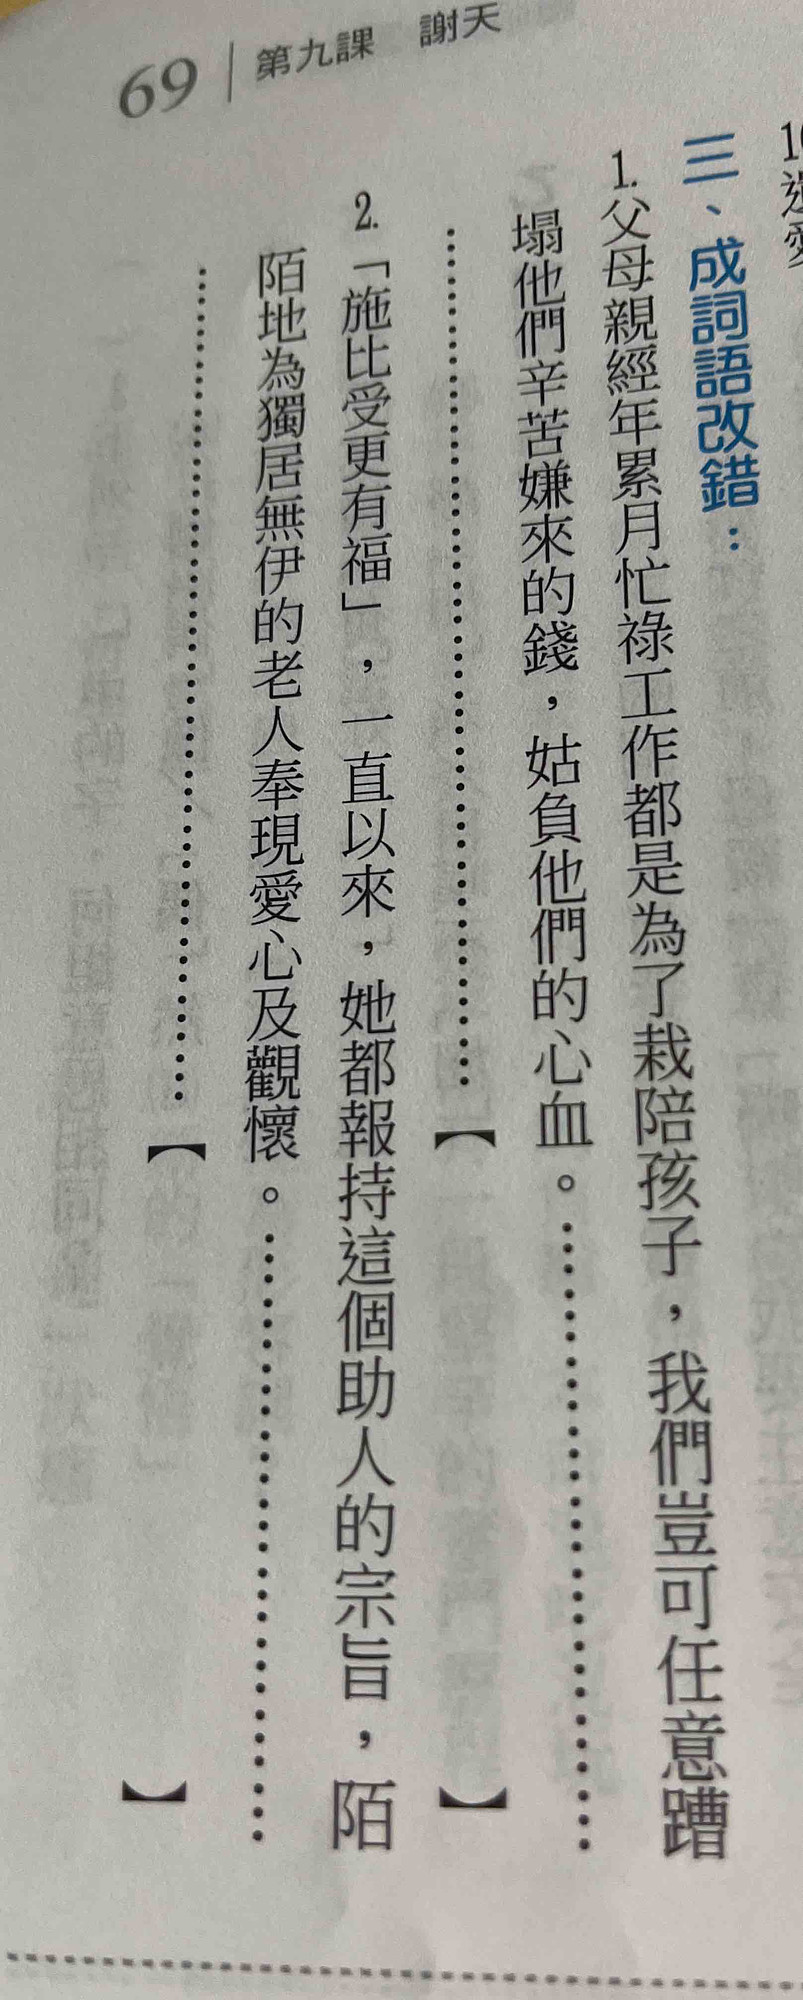 69 第九課 謝天
三、成詞語改錯：
1.父母親經年累月忙祿工作都是為了栽陪孩子，我們豈可任意蹧
塌他們辛苦嫌來的錢，姑負他們的心血。…………………………
…………………………………【 】
2.「施比受更有福」，一直以來，她都報持這個助人的宗旨，陌
陌地為獨居無伊的老人奉現愛心及觀懷。…………………………
…………………………………【 】